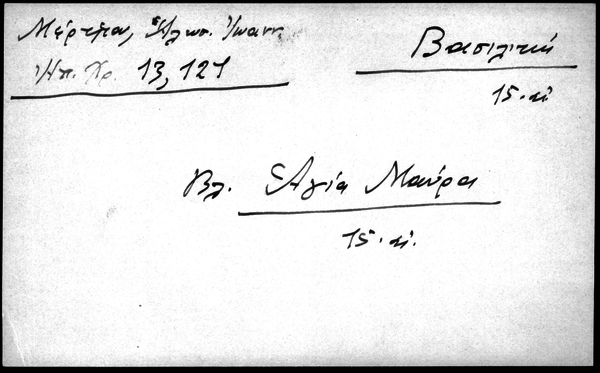 Μέρτζιου, Ἅλωσ. Ἰωανν.
Ἠπ. Χρ. 13, 121
Βασιλική
15. αἰ
Βλ. Ἁγία Μαύρα
15. αἰ.